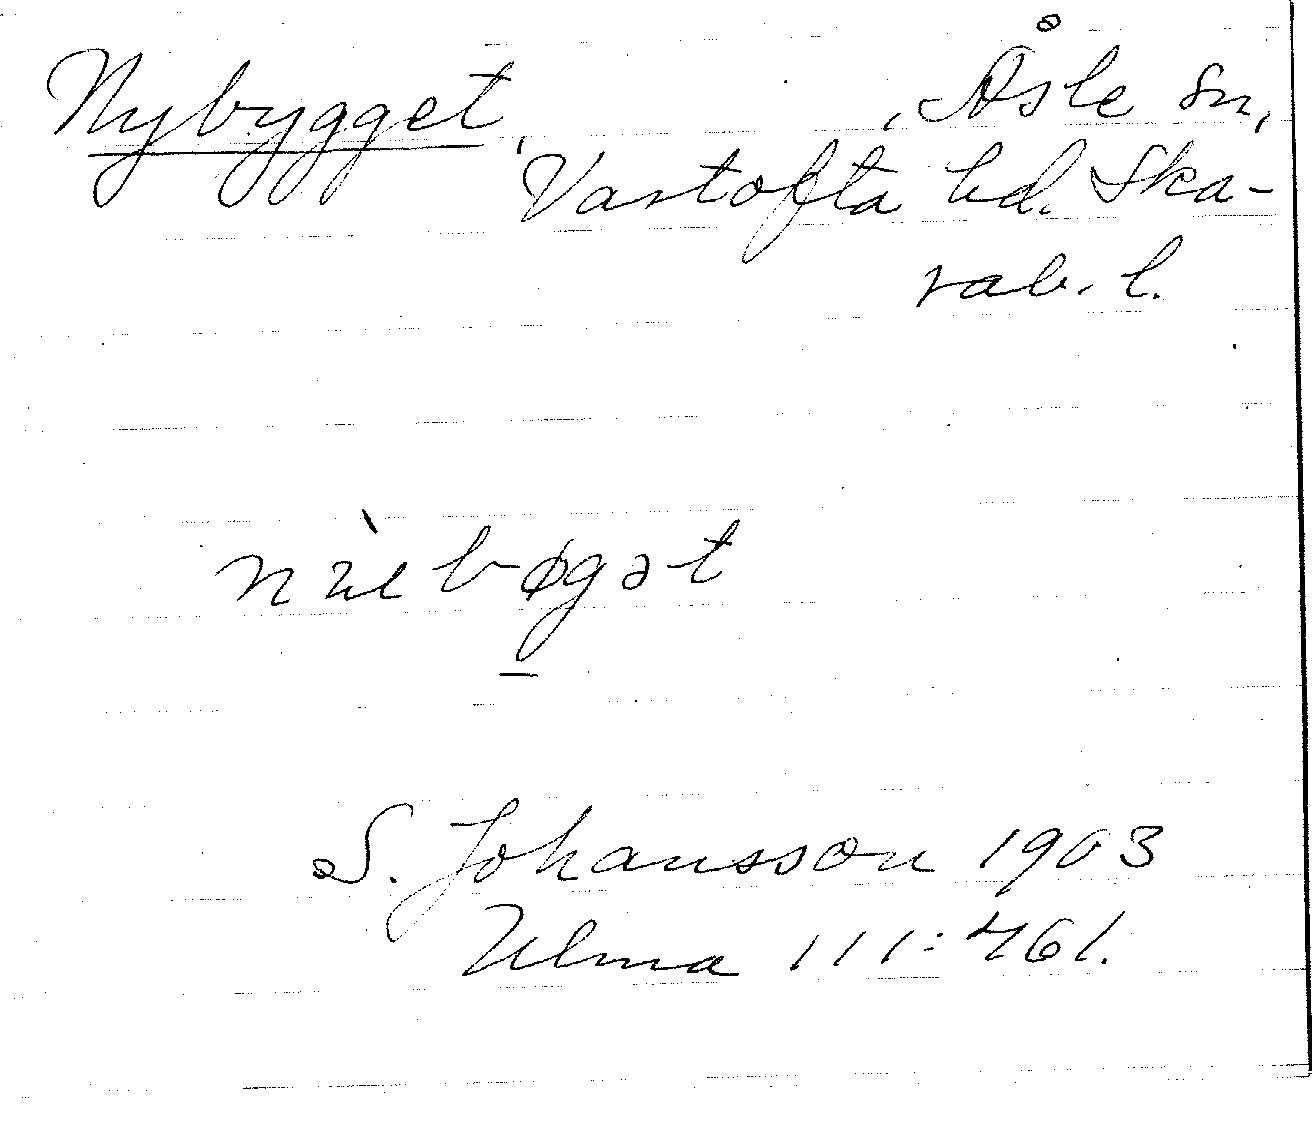 Nybygget, Åsle sn,
Vartofta hd. Ska-
rab. l.
S. Johansson 1903
Ulma 111:461.